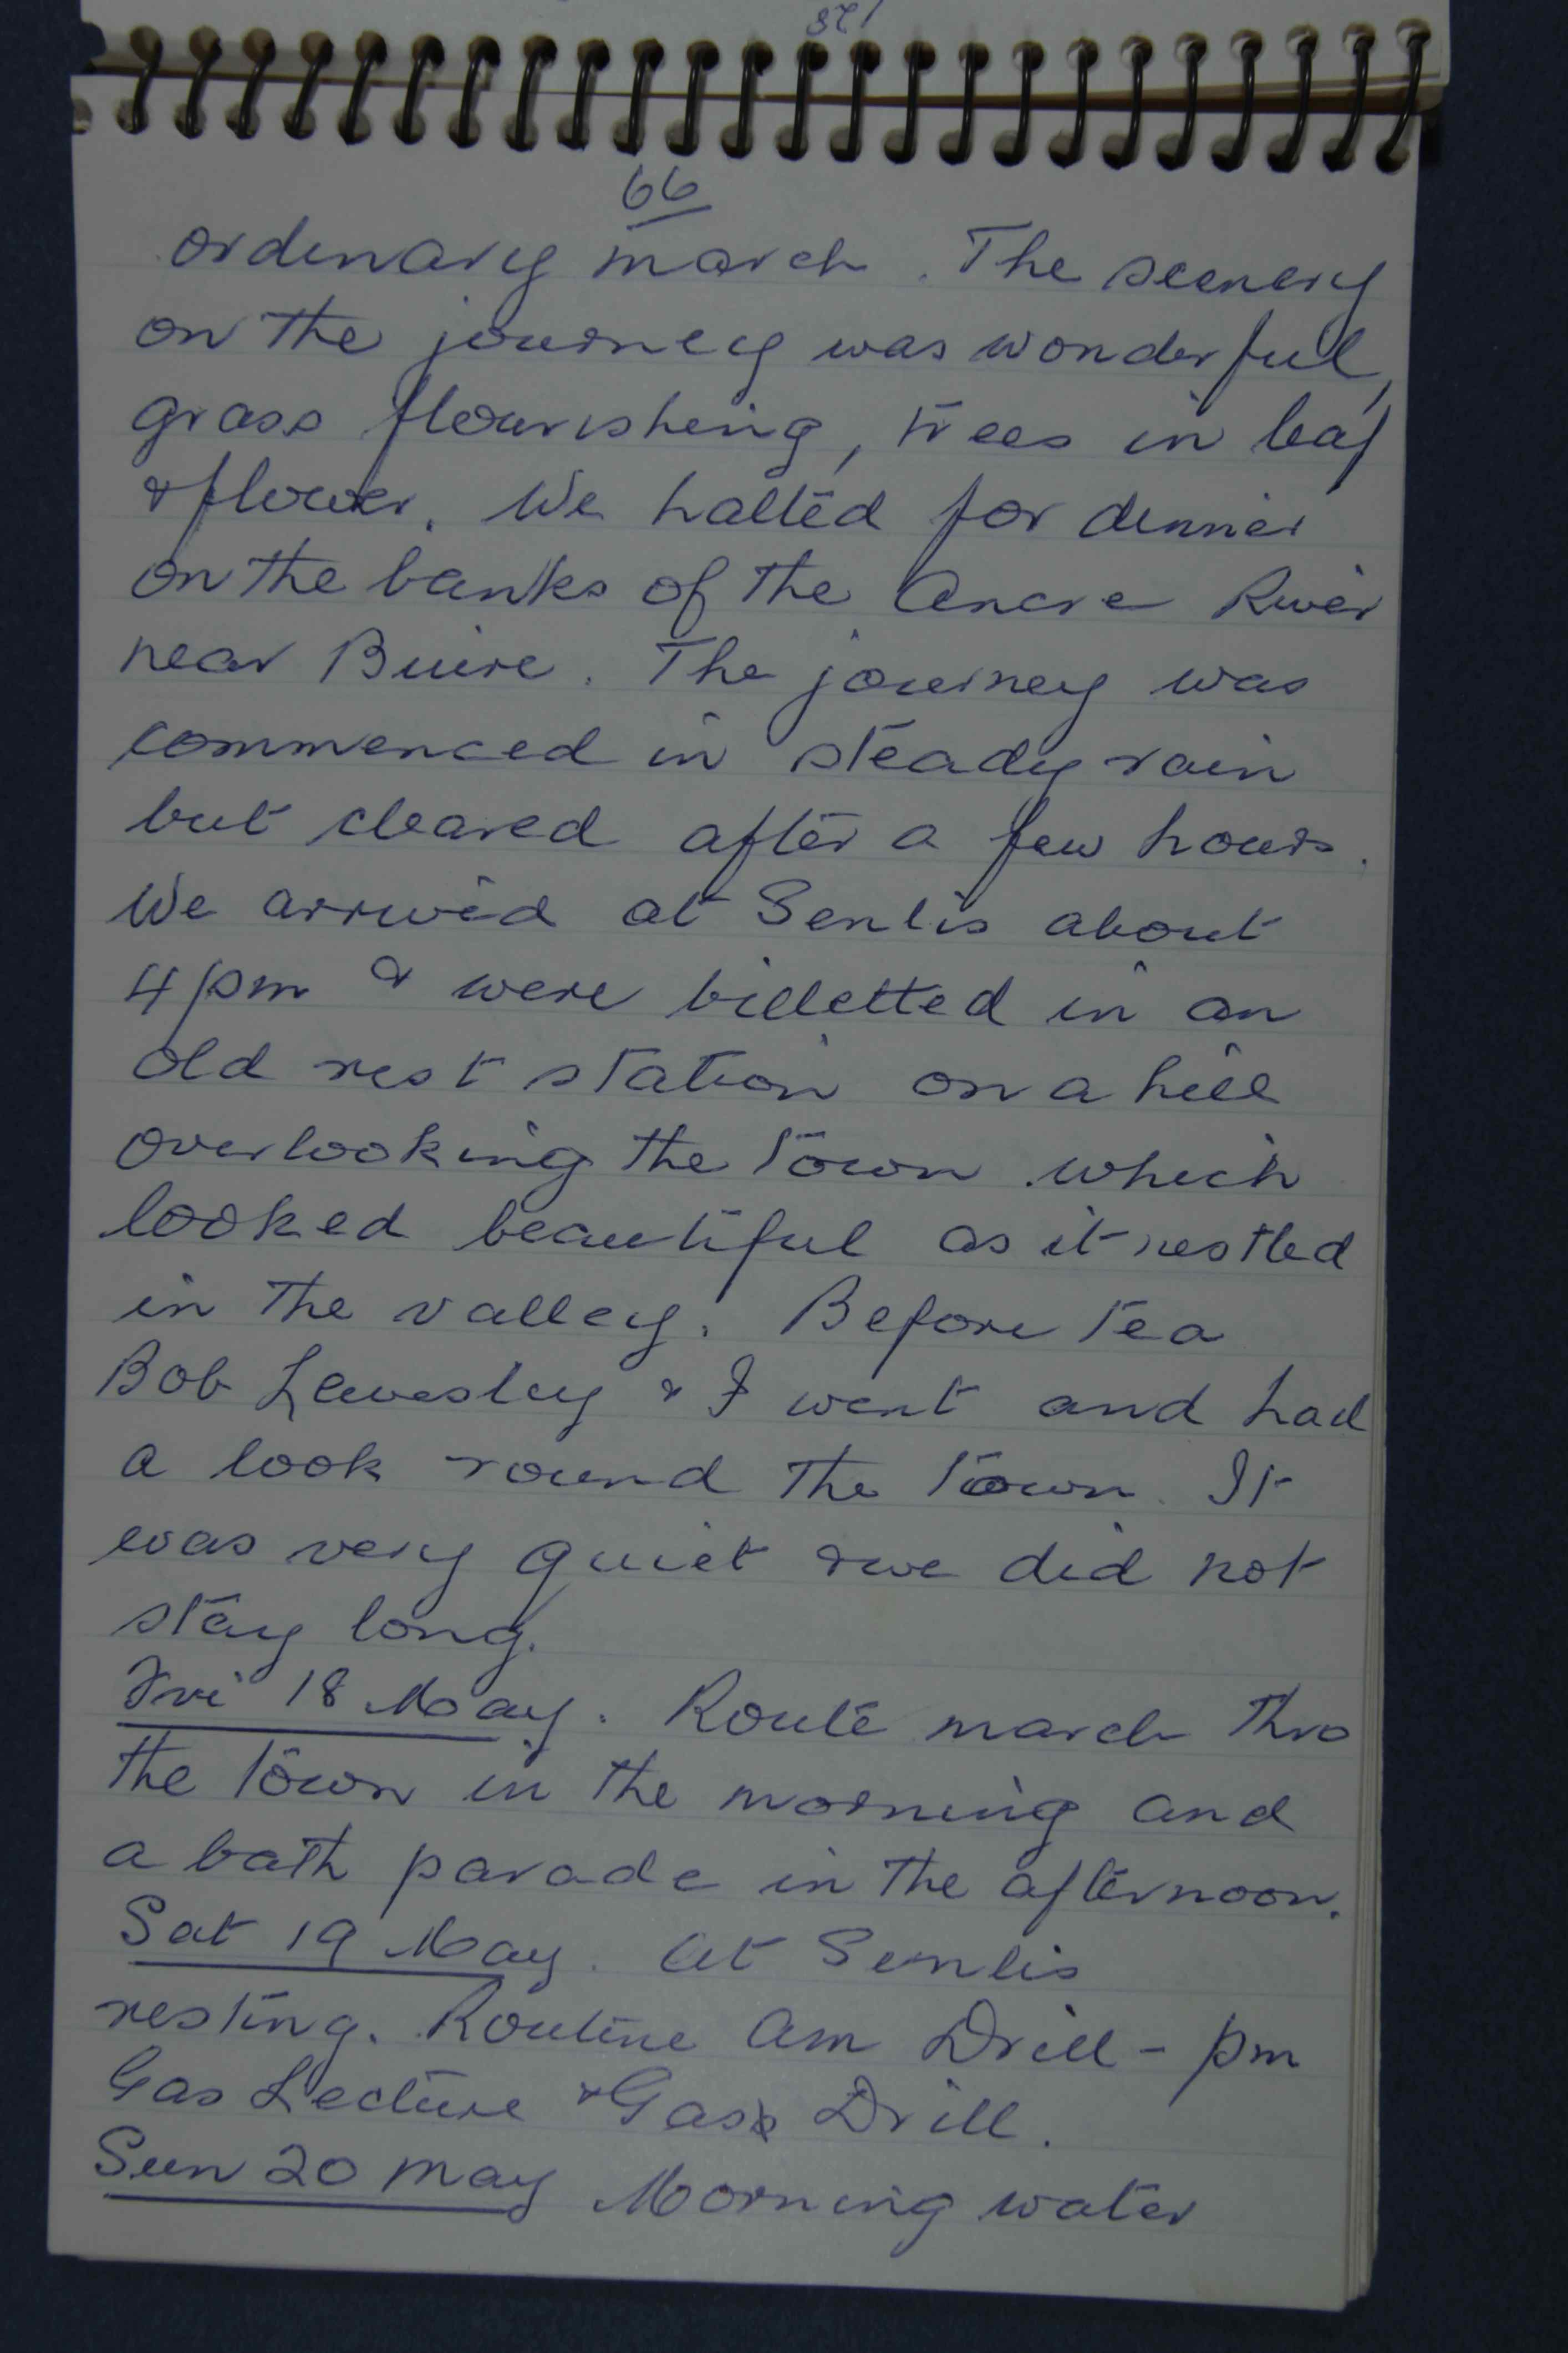 66
ordinary march. The scenery
on the journey was wonderful,
grass flourishing, trees in leaf
& flower. We halted for dinner
on the banks of the Ancre River
near Buire. The journey was
commenced in steady rain
but cleared after a few hours.
We arrived at Senlis about
4 pm & were billetted in an
old rest station on a hill
overlooking the town which
looked beautiful as it nestled
in the valley. Before tea
Bob Lewesley & I went and had
a look round the town. It
was very quiet & we did not
stay long.
Fri 18 May. Route march thro
the town in the morning and
a bath parade in the afternoon.
Sat 19 May. At Senlis
resting. Routine am Drill - pm
Gas Lecture & Gas Drill.
Sun 20 May Morning water